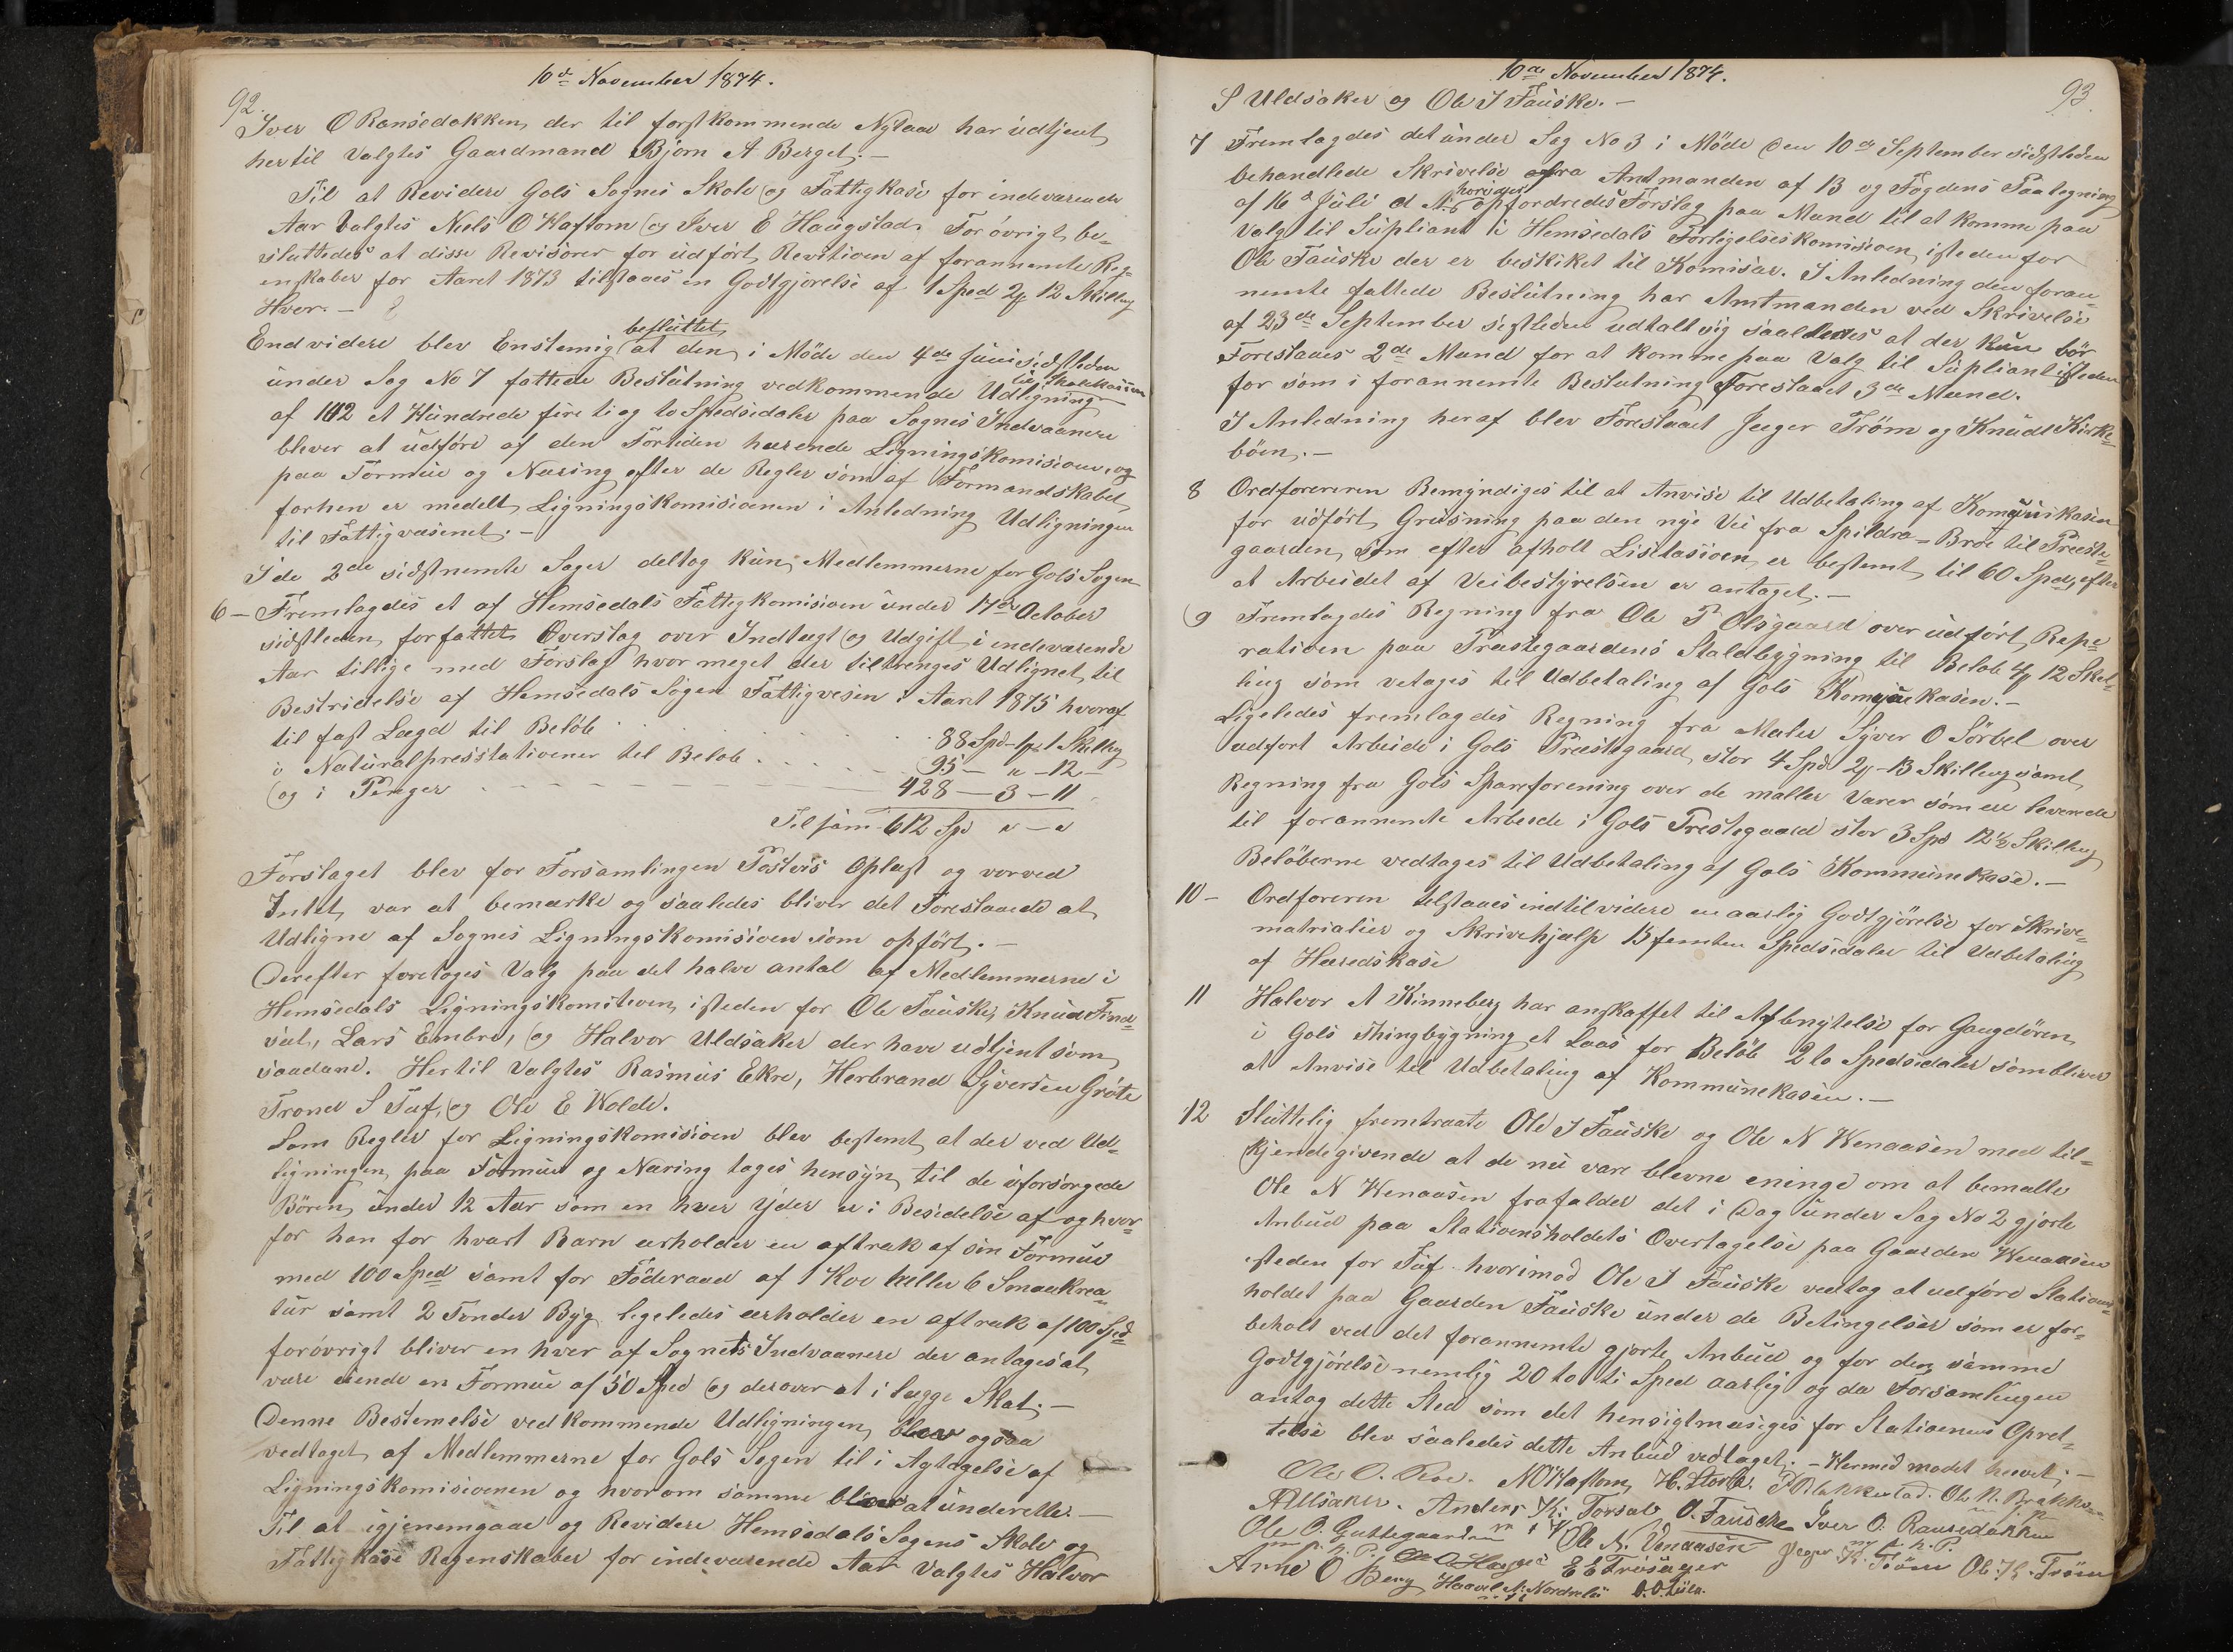 10de November 1874.
92.
Iver O Ransedokken, der til førstkommende Nytaar har udtjent
hertil Valgtes Gaardmand Bjørn A Berget. —
Til at Revidere Gols Sognes Skole og Fattigkase for indeværende
Aar Valgtes Niels O Kaftom og Iver E Haugstad. For øvrigt be-
sluttedes at disse Revisorer for udført Revition af forannemte Reg-
enskaber for Aaret 1873 tilstaaes en Godtgjørelse af 1 Spd 2 12 Skilling
Hver. —
Endvidere blev Enstemig besluttet at den i Møde den 4de Juni sidstleden
under Sag No 7 fattede Beslutning vedkommende Udligning til Skolekassen
af 142 et Hundrede fire ti og to Spedsidaler paa Sognes Indvaanere
blever at udføre af den Fortiden hærende Ligningskomisionen, og
paa Formue og Næring efter de Regler som af Formandskabet
forhen er medelt Ligningskomisionen i Anledning Udligningen
til Fattigvæsenet. —
I de 2de sidstnemte Sager deltog kun Medlemmerne for Gols Sogn
6 — Fremlagdes et af Hemsedals Fattigkomision under 17de October
sidstleden forfattet Overslag over Indtægt og Udgift i indeværende
Aar tillige med Forslag hvor meget der tiltrenges Udlignet til
Bestridelse af Hemsedals Sogen Fattigvesen i Aaret 1875 hvoraf
til fast Lægd til Beløb . . . . 88 Spd 1 1 Skilling
i Naturalpresstationer til Beløb . . . . 95 — " — 12 —
og i Penger — — — — 428 — 3 — 11
Tilsam 612 Spd " — "
Forslaget blev for Forsamlingen Postvis Oplæst og vorved
Intet var at bemærke og saaledes bliver det Foreslaaede at
Udligne af Sognes Ligningskomision som opført. —
Derefter foretoges Valg paa det halve antal af Medlemmerne i
Hemsedals Ligningskomiteen isteden for Ole Fauske, Knud Find-
sæt, Lars Embre, og Halvor Uldsaker der have udtjent som
saadane. Hertil Valgtes Rasmus Ekre, Herbrand Syversen Grøte
Trond S Tuf, og Ole E Kolde.
Som Regler for Ligningskomision blev bestemt at der ved Ud-
ligningen paa Formue og Næring tages hensyn til de uforsørgede
Børen under 12 Aar som en hver yder er i Besidelse af og hvor-
for han for hvart Barn erholder en aftræk af sin Formue
med 100 Sped samt for Føderaad af 1 Koe heller 6 Smaakrea-
tur samt 2 Tønder Byg ligeledes erholder en aftræk af 100 Sped
forøvrigt bliver en hver af Sognets Indvaanere der antages at
vare eiende en Formue af 50 Sped og derover at i lægge Skat. —
Denne Bestemelse vedkommende Udligningen blev ogsaa
vedtaget af Medlemmerne for Gols Sogen til i Agtagelse af
Ligningskomisionen og hvorom samme bliver at underette. —
Til at igjenemgaae og Revidere Hemsedals Sogens Skole og
Fattigkase Regenskaber for indeværende Aar Valgtes Halvor
10de November 1874.
93.
S Uldsaker og Ole I Fauske. —
7 Fremlagdes det under Sag No 3 i Møde den 10de September sidstleden
behandlede Skrivelse fra Amtmanden af B og Fogdens Paategning
af 16de Juli d A. hvorved opfordredes Forslag paa Mand til at komme paa
Valg til Supliant i Hemsedals Forligelseskomision, isteden for
Ole Fauske der er beskiket til Komisær. I Anledning den foran-
nemte fattede Beslutning har Amtmanden ved Skrivelse
af 23de September sistleden udtalt sig saaledes at der kun bør
Foreslaaes 2de Mand for at komme paa Valg til Supliant isteden
for som i forannemte Beslutning Foreslaaet 3de Mand.
I Anledning heraf blev Foreslaaet Jeger Trøm og Knudt Kirke-
bøen. —
8 Ordføreren Bemyndiges til at Anvise til Udbetaling af Komunikasen
for udført Grusning paa den nye Vei fra Spildra-Broe til Preste-
gaarden, som efter afholt Lisitasion, er bestemt til 60 Spd, efter
at Arbeidet af Veibestyrelsen er antaget. —
9 Fremlagdes Regning fra Ole P Olsgaard over udført Repe-
ration paa Præstegaardens Staldbygning til Beløb 4 12 Skil-
ling som vetages til Udbetaling af Gols Komunekasen. —
Ligeledes fremlagdes Regning fra Maler Syver O Sørbel over
udført Arbeide i Gols Præstegaard, stor 4 Spd 2 - 13 Skilling samt
Regning fra Gols Spareforening over de maller Varer som ere leverede
til forannemte Arbeide i Gols Prestegaard stor 3 Spd 12½ Skilling
Beløberne vedtages til Udbetaling af Gols Kommunekase. —
10 — Ordføreren tilstaaes indtil videre en aarlig Godtgjørelse for Skrive-
matrialier og Skrivehjælp 15 femten Spedsedaler til Udbetaling
af Heredskase
11 Halvor A Kinneberg har anskaffet til Afbenytelse for Gangdøren
i Gols Thingbygning et Laas for Beløb 2 to Spedsidaler som bliver
at Anvise til Udbetaling af Kommunekasen. —
12 Sluttelig fremtraate Ole I Fauske og Ole N Wenaasen med til-
kjendegivende at de nu vare blevne eninge om at bemelte
Ole N Wenaasen frafalder det i Dag under Sag No 2 gjorte
Anbud paa Stationsholdets Overtagelse paa Gaarden Wenaasen
isteden for Tuf hvorimod Ole I Fauske vedtog at udføre Station-
holdet paa Gaarden Fauske under de Betingelser som er for-
beholt ved det forannemte gjorte Anbud og for den samme
Godtgjørelse nemlig 20 to ti Sped aarlig og da Forsamlingen
antog dette Sted som det hensigtmæsiges for Stationens Opret-
telse blev saaledes dette Anbud vedtaget. — Hermed mødet hævet. —
Ole O. Roe. N O Kaftom H. Storle. Ole N. Brakke
Aillsaker. Anders K. Torsal O. Fauske Iver O. Ransedokken
Ole O. Guttegaarden Ole N. Venaasen Jeger K. Trøm Ole K. Trøm
Arne O Berg E E Trøsager